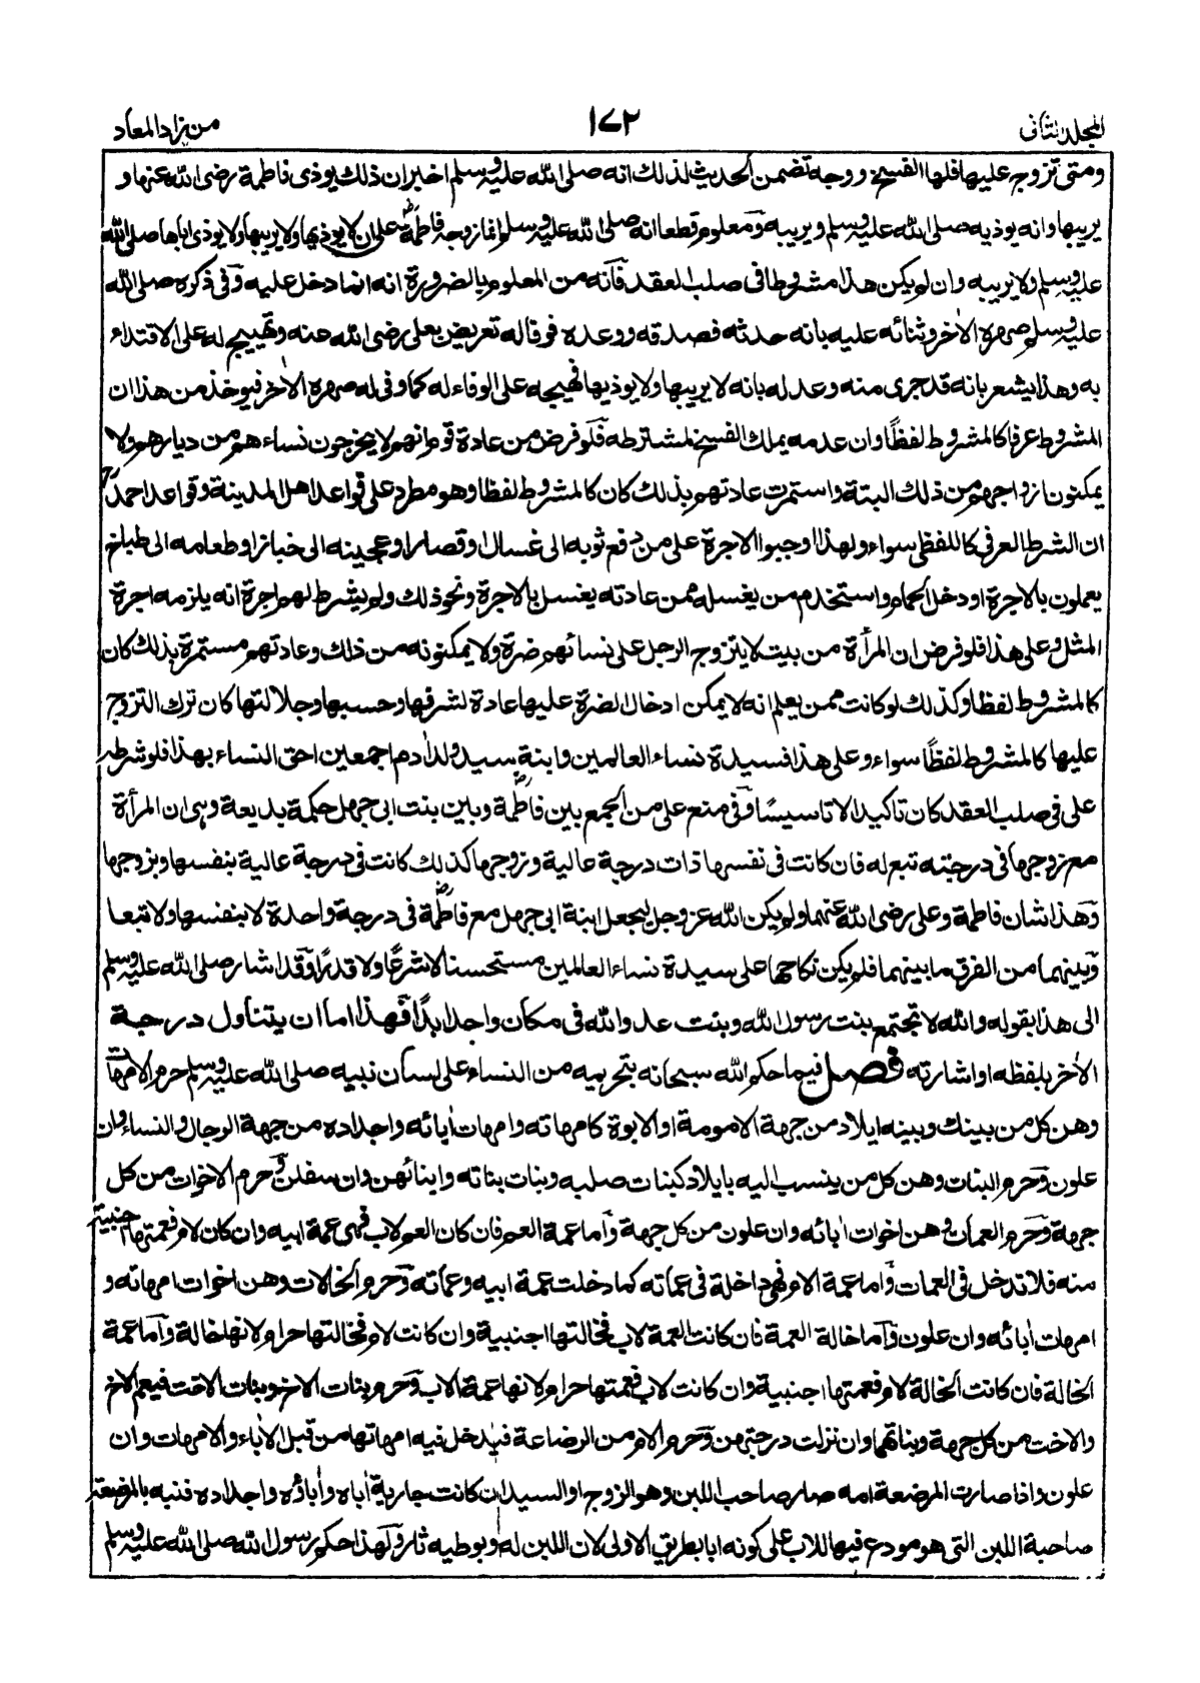 المجلد الثانى
١٧٢
من زاد المعاد
ومتى تزوج عليها فلها الفسخ ووجه تضمن الحديث لذلك انه صلى الله عليه وسلم اخبر ان ذلك يوذى فاطمة رضى الله عنها و
يريبها وانه يوذيه صلى الله عليه وسلم ويريبه ومعلوم قطعا انه صلى الله عليه وسلم انما زوجه فاطمة على ان لا يوذيها ولا يريبها ولا يوذى اباها صلى الله
عليه وسلم ولا يريبه وان لم يكن هذا مشروطا فى صلب العقد فانه من المعلوم بالضرورة انه انما دخل عليه وفى ذكره صلى الله
عليه وسلم صهره الاخر وثنائه عليه بانه حدثه فصدقه ووعده فوفا له تعريض بعلى رضى الله عنه وتهييج له على الاقتداء
به وهذا يشعر بانه قد جرى منه وعد له بانه لا يريبها ولا يوذيها فهيجه على الوفاء له كما وفى له صهره الاخر فيوخذ من هذا ان
المشروط عرفا كالمشروط لفظًا وان عدمه يملك الفسخ لمشترطه فلو فرض من عادة قوم انهم لا يخرجون نساءهم من ديارهم ولا
يمكنون ازواجهم من ذلك البتة واستمرت عادتهم بذلك كان كالمشروط لفظا وهو مطرد على قواعد اهل المدينة وقواعد احمد
ان الشرط العرفى كاللفظى سواء ولهذا اوجبوا الاجرة على من دفع ثوبه الى غسال او قصار او عجينه الى خباز او طعامه الى طباخ
يعملون بالاجرة او دخل الحمام واستخدم من يغسله ممن عادته يغسل بالاجرة ونحو ذلك ولم يشرط لهم اجرة انه يلزمه اجرة
المثل وعلى هذا فلو فرض ان المرأة من بيت لا يتزوج الرجل على نسائهم ضرة ولا يمكنونه من ذلك وعادتهم مستمرة بذلك كان
كالمشروط لفظا وكذلك لو كانت ممن يعلم انه لا يمكن ادخال الضرة عليها عادة لشرفها وحسبها وجلالتها كان ترك التزوج
عليها كالمشروط لفظًا سواء وعلى هذا فسيدة نساء العالمين وابنة سيد ولد ادم اجمعين احق النساء بهذا فلو شرطه
على فى صلب العقد كان تاكيدا لا تاسيسًا وفى منع على من الجمع بين فاطمة وبين بنت ابى جهل حكمة بديعة وهى ان المرأة
مع زوجها فى درجته تبع له فان كانت فى نفسها ذات درجة عالية وزوجها كذلك كانت فى درجة عالية بنفسها وبزوجها
وهذا شان فاطمة وعلى رضى الله عنهما ولم يكن الله عز وجل ليجعل ابنة ابى جهل مع فاطمة فى درجة واحدة لا بنفسها ولا تبعا
وبينهما من الفرق ما بينهما فلم يكن نكاحها على سيدة نساء العالمين مستحسنا لا شرعًا ولا قدرًا وقد اشار صلى الله عليه وسلم
الى هذا بقوله والله لا تجتمع بنت رسول الله وبنت عدو الله فى مكان واحد ابدًا فهذا اما ان يتناول درجة
الاخر بلفظه او اشارته فصل فيما حكم الله سبحانه بتحريمه من النساء على لسان نبيه صلى الله عليه وسلم حرم الامهات
وهن كل من بينك وبينه ايلاد من جهة الامومة او الابوة كامهاته وامهات ابائه واجداده من جهة الرجال والنساء وان
علون وحرم البنات وهن كل من ينسب اليه بايلاد كبنات صلبه وبنات بناته وابنائهن وان سفلن وحرم الاخوات من كل
جهة وحرم العمات وهن اخوات ابائه وان علون من كل جهة واما عمة العم فان كان العم لاب فهى عمة ابيه وان كان لام فعمتها اجنبية
منه فلا تدخل فى العمات واما عمة الام فهى داخلة فى عماته كما دخلت عمة ابيه وعماته وحرم الخالات وهن اخوات امهاته و
امهات ابائه وان علون واما خالة العمة فان كانت العمة لاب فخالتها اجنبية وان كانت لام فخالتها حرام لانها خالة واما عمة
الخالة فان كانت الخالة لام فعمتها اجنبية وان كانت لاب فعمتها حرام لانها عمة الاب وحرم بنات الاخ وبنات الاخت فيعم الاخ
والاخت من كل جهة وبناتهما وان نزلت درجتهن وحرم الام من الرضاعة فيدخل فيه امهاتها من قبل الاباء والامهات وان
علون واذا صارت المرضعة امه صار صاحب اللبن وهو الزوج او السيد ان كانت جارية اباه واباؤه واجداده فنبه بالمرضعة
صاحبة اللبن التى هو مودع فيها للاب على كونه ابا بطريق الاولى لان اللبن له وبوطيه ثار ولهذا حكم رسول الله صلى الله عليه وسلم